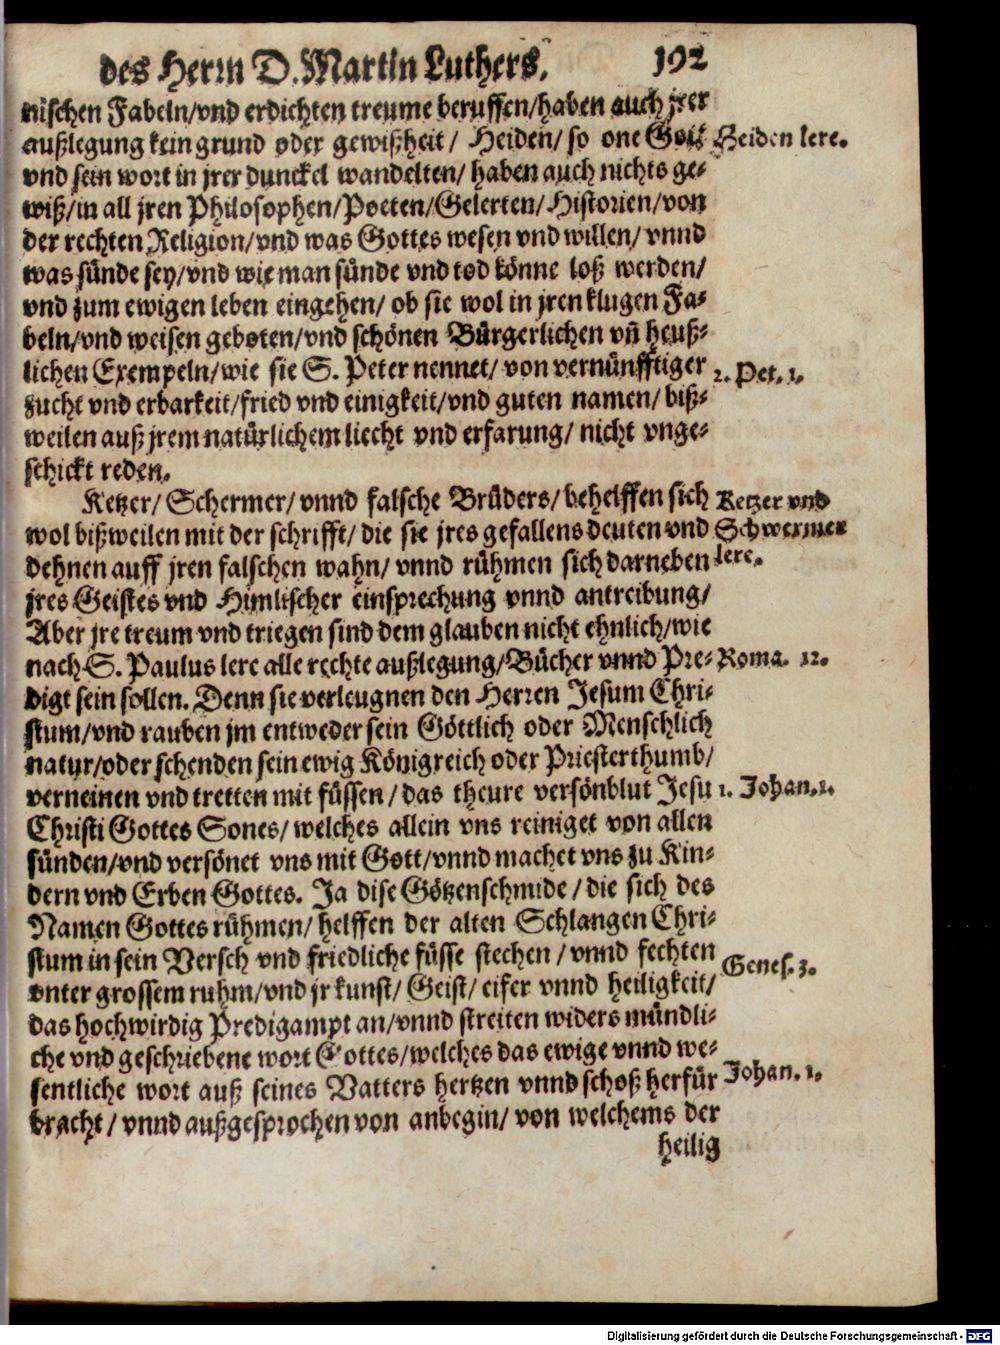 des Herrn D. Martin Luthers. 192
nischen Fabeln/vnd erdichten treume beruffen/haben auch jrer
außlegung kein grund oder gewißheit/ Heiden/ so one Gott
Heiden lere.
vnd sein wort in jrer dunckel wandelten/ haben auch nichts ge-
wiß/in all jren Philosophen/Poeten/Gelerten/Historien/von
der rechten Religion/vnd was Gottes wesen vnd willen/ vnnd
was sünde sey/vnd wie man sünde vnd tod könne loß werden/
vnd zum ewigen leben eingehen/ ob sie wol in jren klugen Fa-
beln/vnd weisen geboten/vnd schönen Bürgerlichen vñ heuß-
lichen Exempeln/wie sie S. Peter nennet/ von vernünfftiger
2. Pet. 1.
zucht vnd erbarkeit/fried vnd einigkeit/vnd guten namen/ biß-
weilen auß jrem natürlichem liecht vnd erfarung/ nicht vnge-
schickt reden.
Ketzer/ Schermer/ vnnd falsche Brüders/ behelffen sich
Ketzer vnd
wol bißweilen mit der schrifft/ die sie jres gefallens deuten vnd
Schwermer
dehnen auff jren falschen wahn/ vnnd rühmen sich darneben
lere.
jres Geistes vnd Himlischer einsprechung vnnd antreibung/
Aber jre treum vnd triegen sind dem glauben nicht ehnlich/wie
nach S. Paulus lere alle rechte außlegung/Bücher vnnd Pre-
Roma. 12.
digt sein sollen. Denn sie verleugnen den Herren Jesum Chri-
stum/vnd rauben jm entweder sein Göttlich oder Menschlich
natur/oder schenden sein ewig Königreich oder Priesterthumb/
verneinen vnd tretten mit füssen/ das theure versönblut Jesu
1. Johan. 1.
Christi Gottes Sones/ welches allein vns reiniget von allen
sünden/vnd versönet vns mit Gott/vnnd machet vns zu Kin-
dern vnd Erben Gottes. Ja dise Götzenschmide/ die sich des
Namen Gottes rühmen/ helffen der alten Schlangen Chri-
stum in sein Versch vnd friedliche füsse stechen/ vnnd fechten
Genes. 3.
vnter grossem ruhm/vnd jr kunst/ Geist/ eifer vnnd heiligkeit/
das hochwirdig Predigampt an/vnnd streiten widers mündli-
che vnd geschriebene wort Gottes/welches das ewige vnnd we-
sentliche wort auß seines Vatters hertzen vnnd schoß herfür
Johan. 1.
bracht/ vnnd außgesprochen von anbegin/ von welchems der
heilig
Digitalisierung gefördert durch die Deutsche Forschungsgemeinschaft - DFG